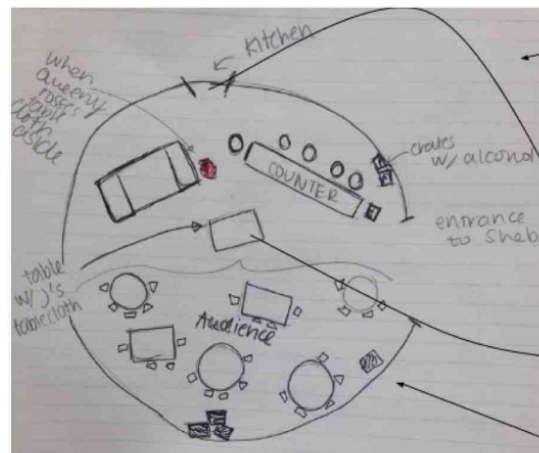 Kitchen
when
queeny
tosses
table
cloth
aside
crates
w/ alcohol
COUNTER
entrance
to Sheb
table
w/ J's
tablecloth
Audience